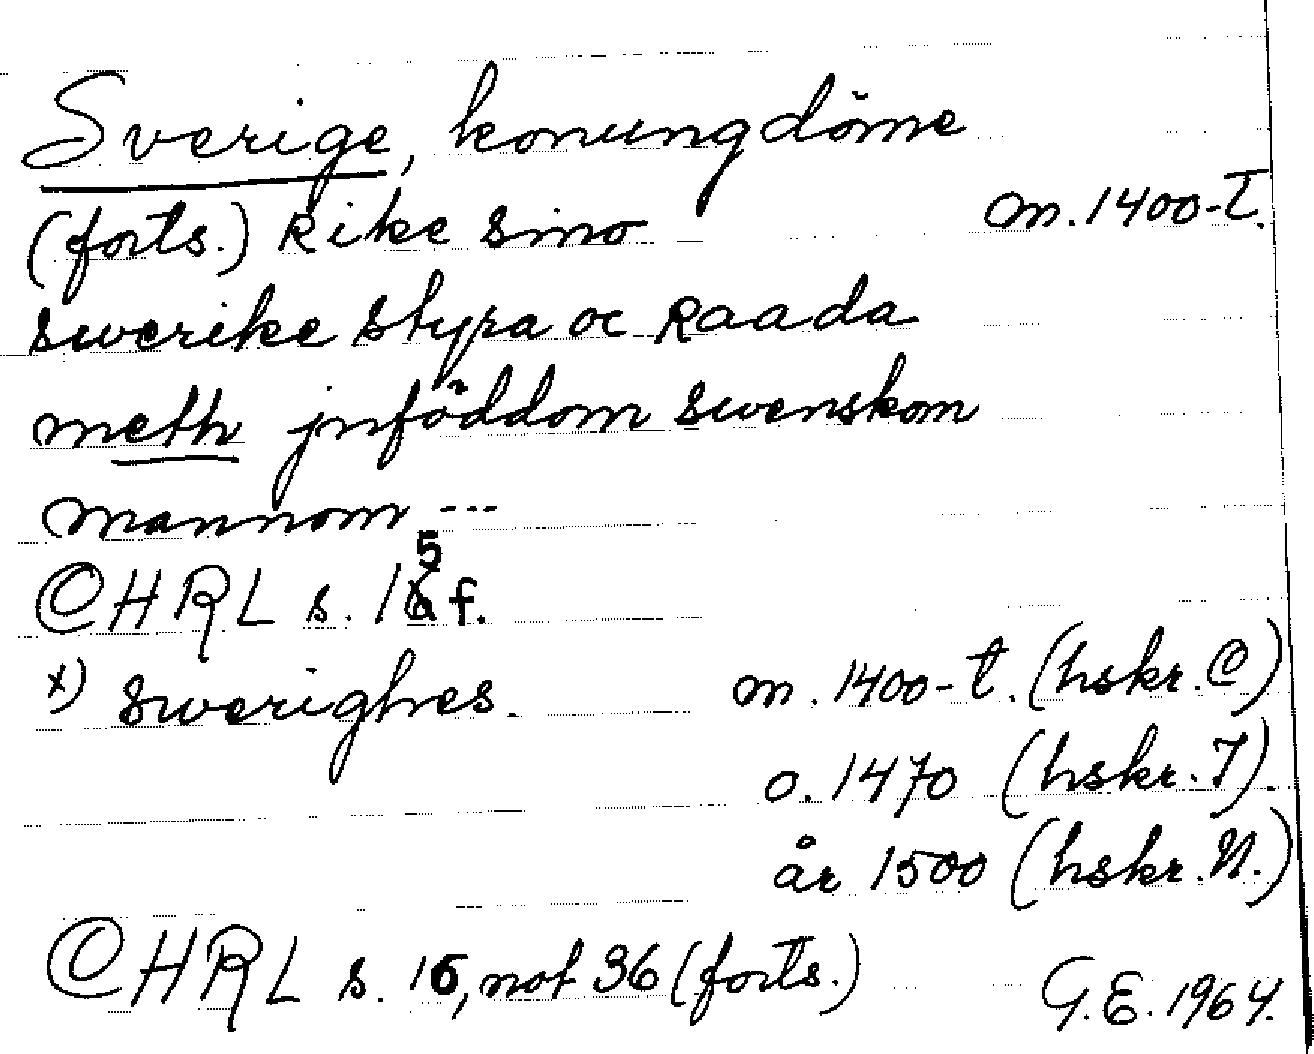 Sverige, konungdöme
(forts.) Rike sino m. 1400-t.
swerike styra oc Raada
meth jnföddom swenskom
mannom ---
CHRL s. 15 f.
x) swerighes. m. 1400-t. (hskr. C)
o. 1470 (hskr. J).
år 1500 (hskr. N.)
CHRL s. 15, not 36 (forts.)
G.E. 1964.